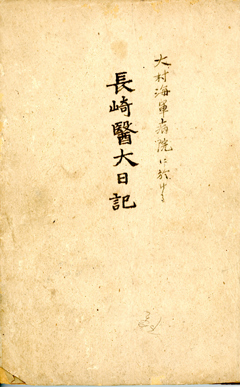 大村海軍病院に於ける
長崎醫大日記